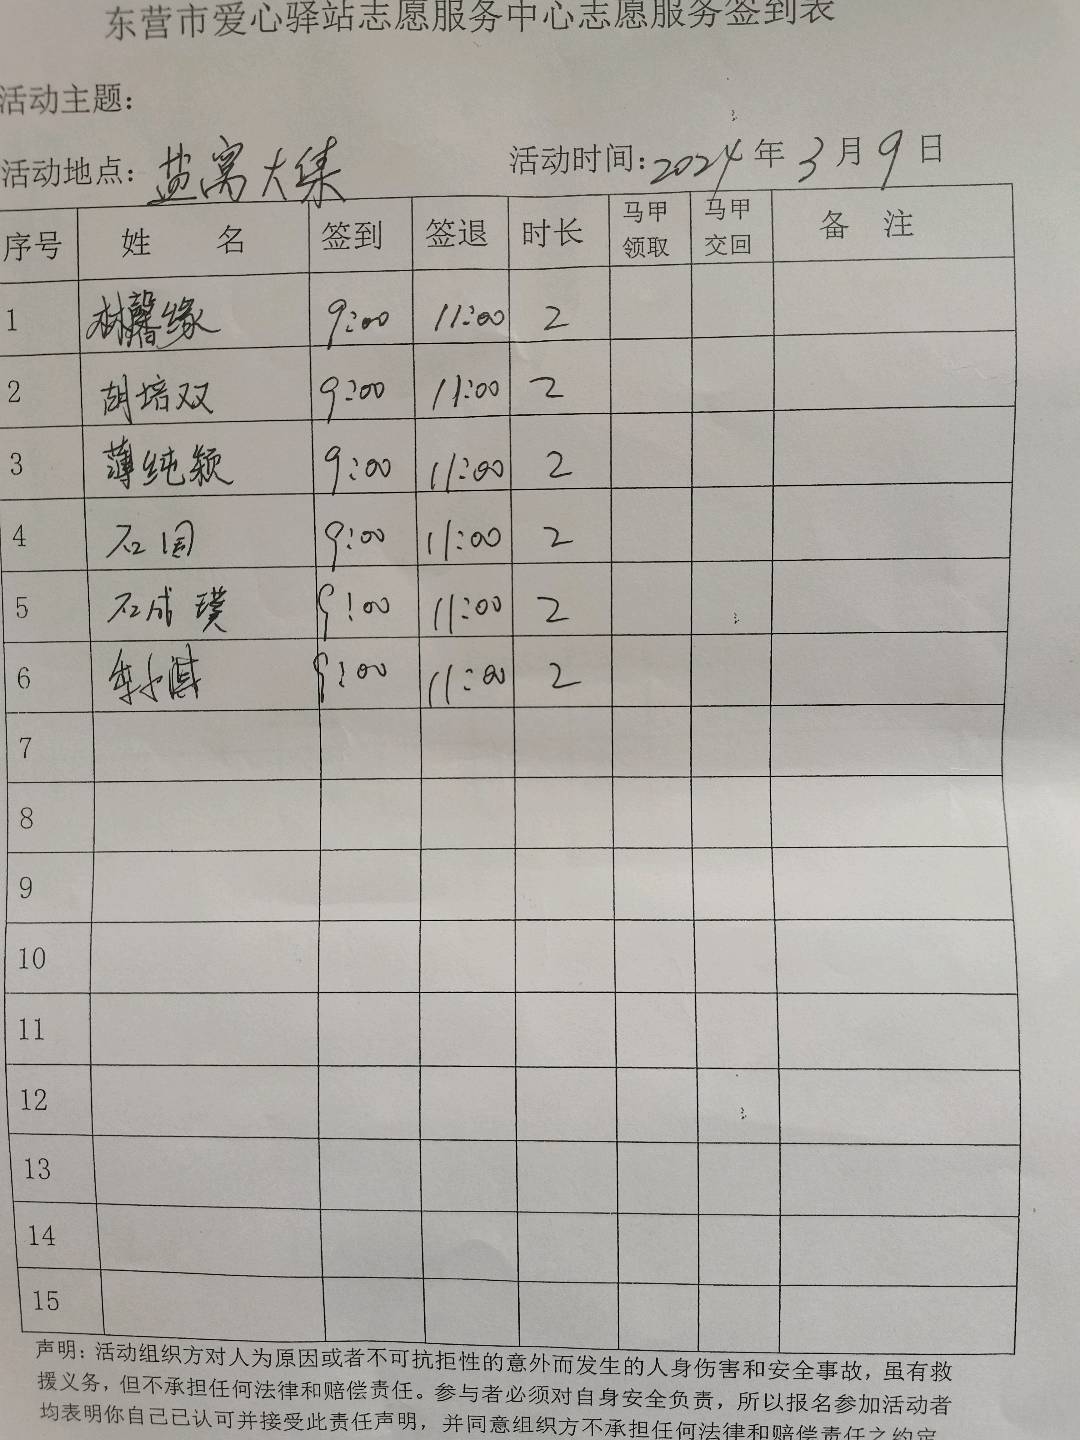 东营市爱心驿站志愿服务中心志愿服务签到表
活动主题：
活动地点：盐窝大集 活动时间：2024年3月9日
序号 姓 名 签到 签退 时长 马甲领取 马甲交回 备 注
1 林馨缘 9:00 11:00 2
2 胡培双 9:00 11:00 2
3 薄纯颖 9:00 11:00 2
4 石国 9:00 11:00 2
5 石成璞 9:00 11:00 2
6 9:00 11:00 2
7
8
9
10
11
12
13
14
15
声明：活动组织方对人为原因或者不可抗拒性的意外而发生的人身伤害和安全事故，虽有救
援义务，但不承担任何法律和赔偿责任。参与者必须对自身安全负责，所以报名参加活动者
均表明你自己己认可并接受此责任声明，并同意组织方不承担任何法律和赔偿责任之约定